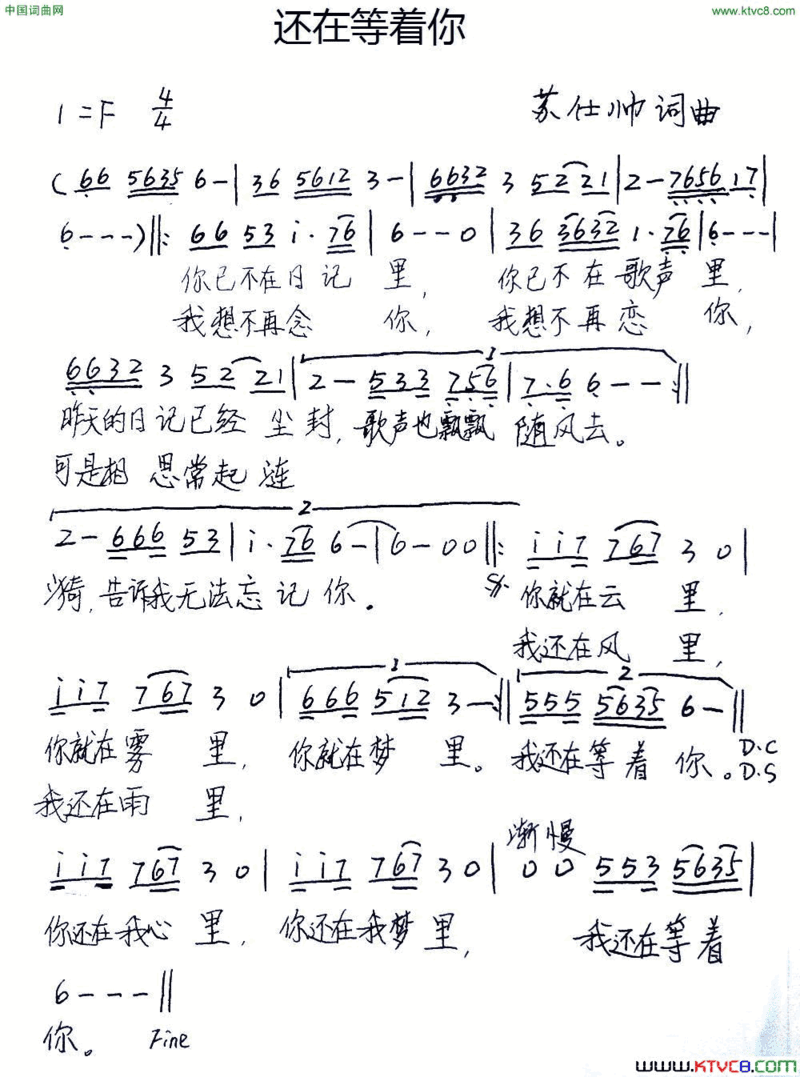 中国词曲网
www.ktvc8.com
还在等着你
1=F 4/4 苏仕帅词曲
(66 5635 6-|36 5612 3-|6632 3 52 21|2-7656 17|
6---)‖:66 53 i·76|6--0|36 3632 1·76|6---|
你已不在日记 里, 你已不在歌声里,
我想不再念 你, 我想不再恋 你,
1
6632 3 52 21|2-533 756|7·6 6--:‖
昨天的日记已经 尘封,歌声也飘飘 随风去。
可是相 思常起 涟
2
2-666 53|i·76 6-|6-00‖: ii7 767 3 0|
漪,告诉我无法忘记 你。 你就在云 里,
我还在风 里,
1 2
ii7 767 3 0|666 512 3-:‖555 5635 6-‖
你就在雾 里, 你就在梦 里。我还在等着 你。D.C
D.S
我还在雨 里,
渐慢
ii7 767 3 0|ii7 767 3 0|0 0 553 5635|
你还在我心 里, 你还在我梦里, 我还在等着
6---‖
你。 Fine
www.KTVC8.com